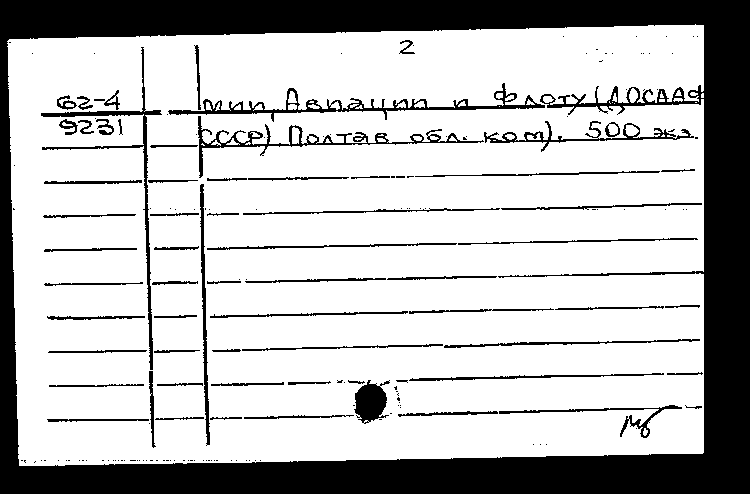 2
62-4 мии, Авиации и Флоту (ДОСААФ
9231 СССР) Полтав обл. ком). 500 экз.